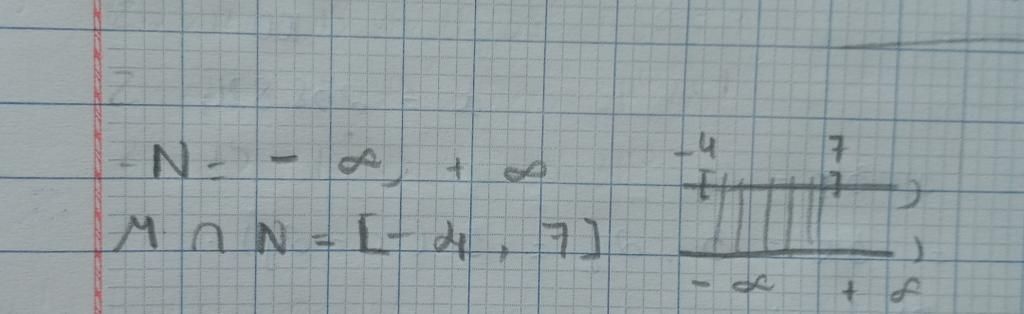 N = - ∞, + ∞
M ∩ N = [- 4, 7]
-4 7
[ ] )
)
- ∞ + ∞